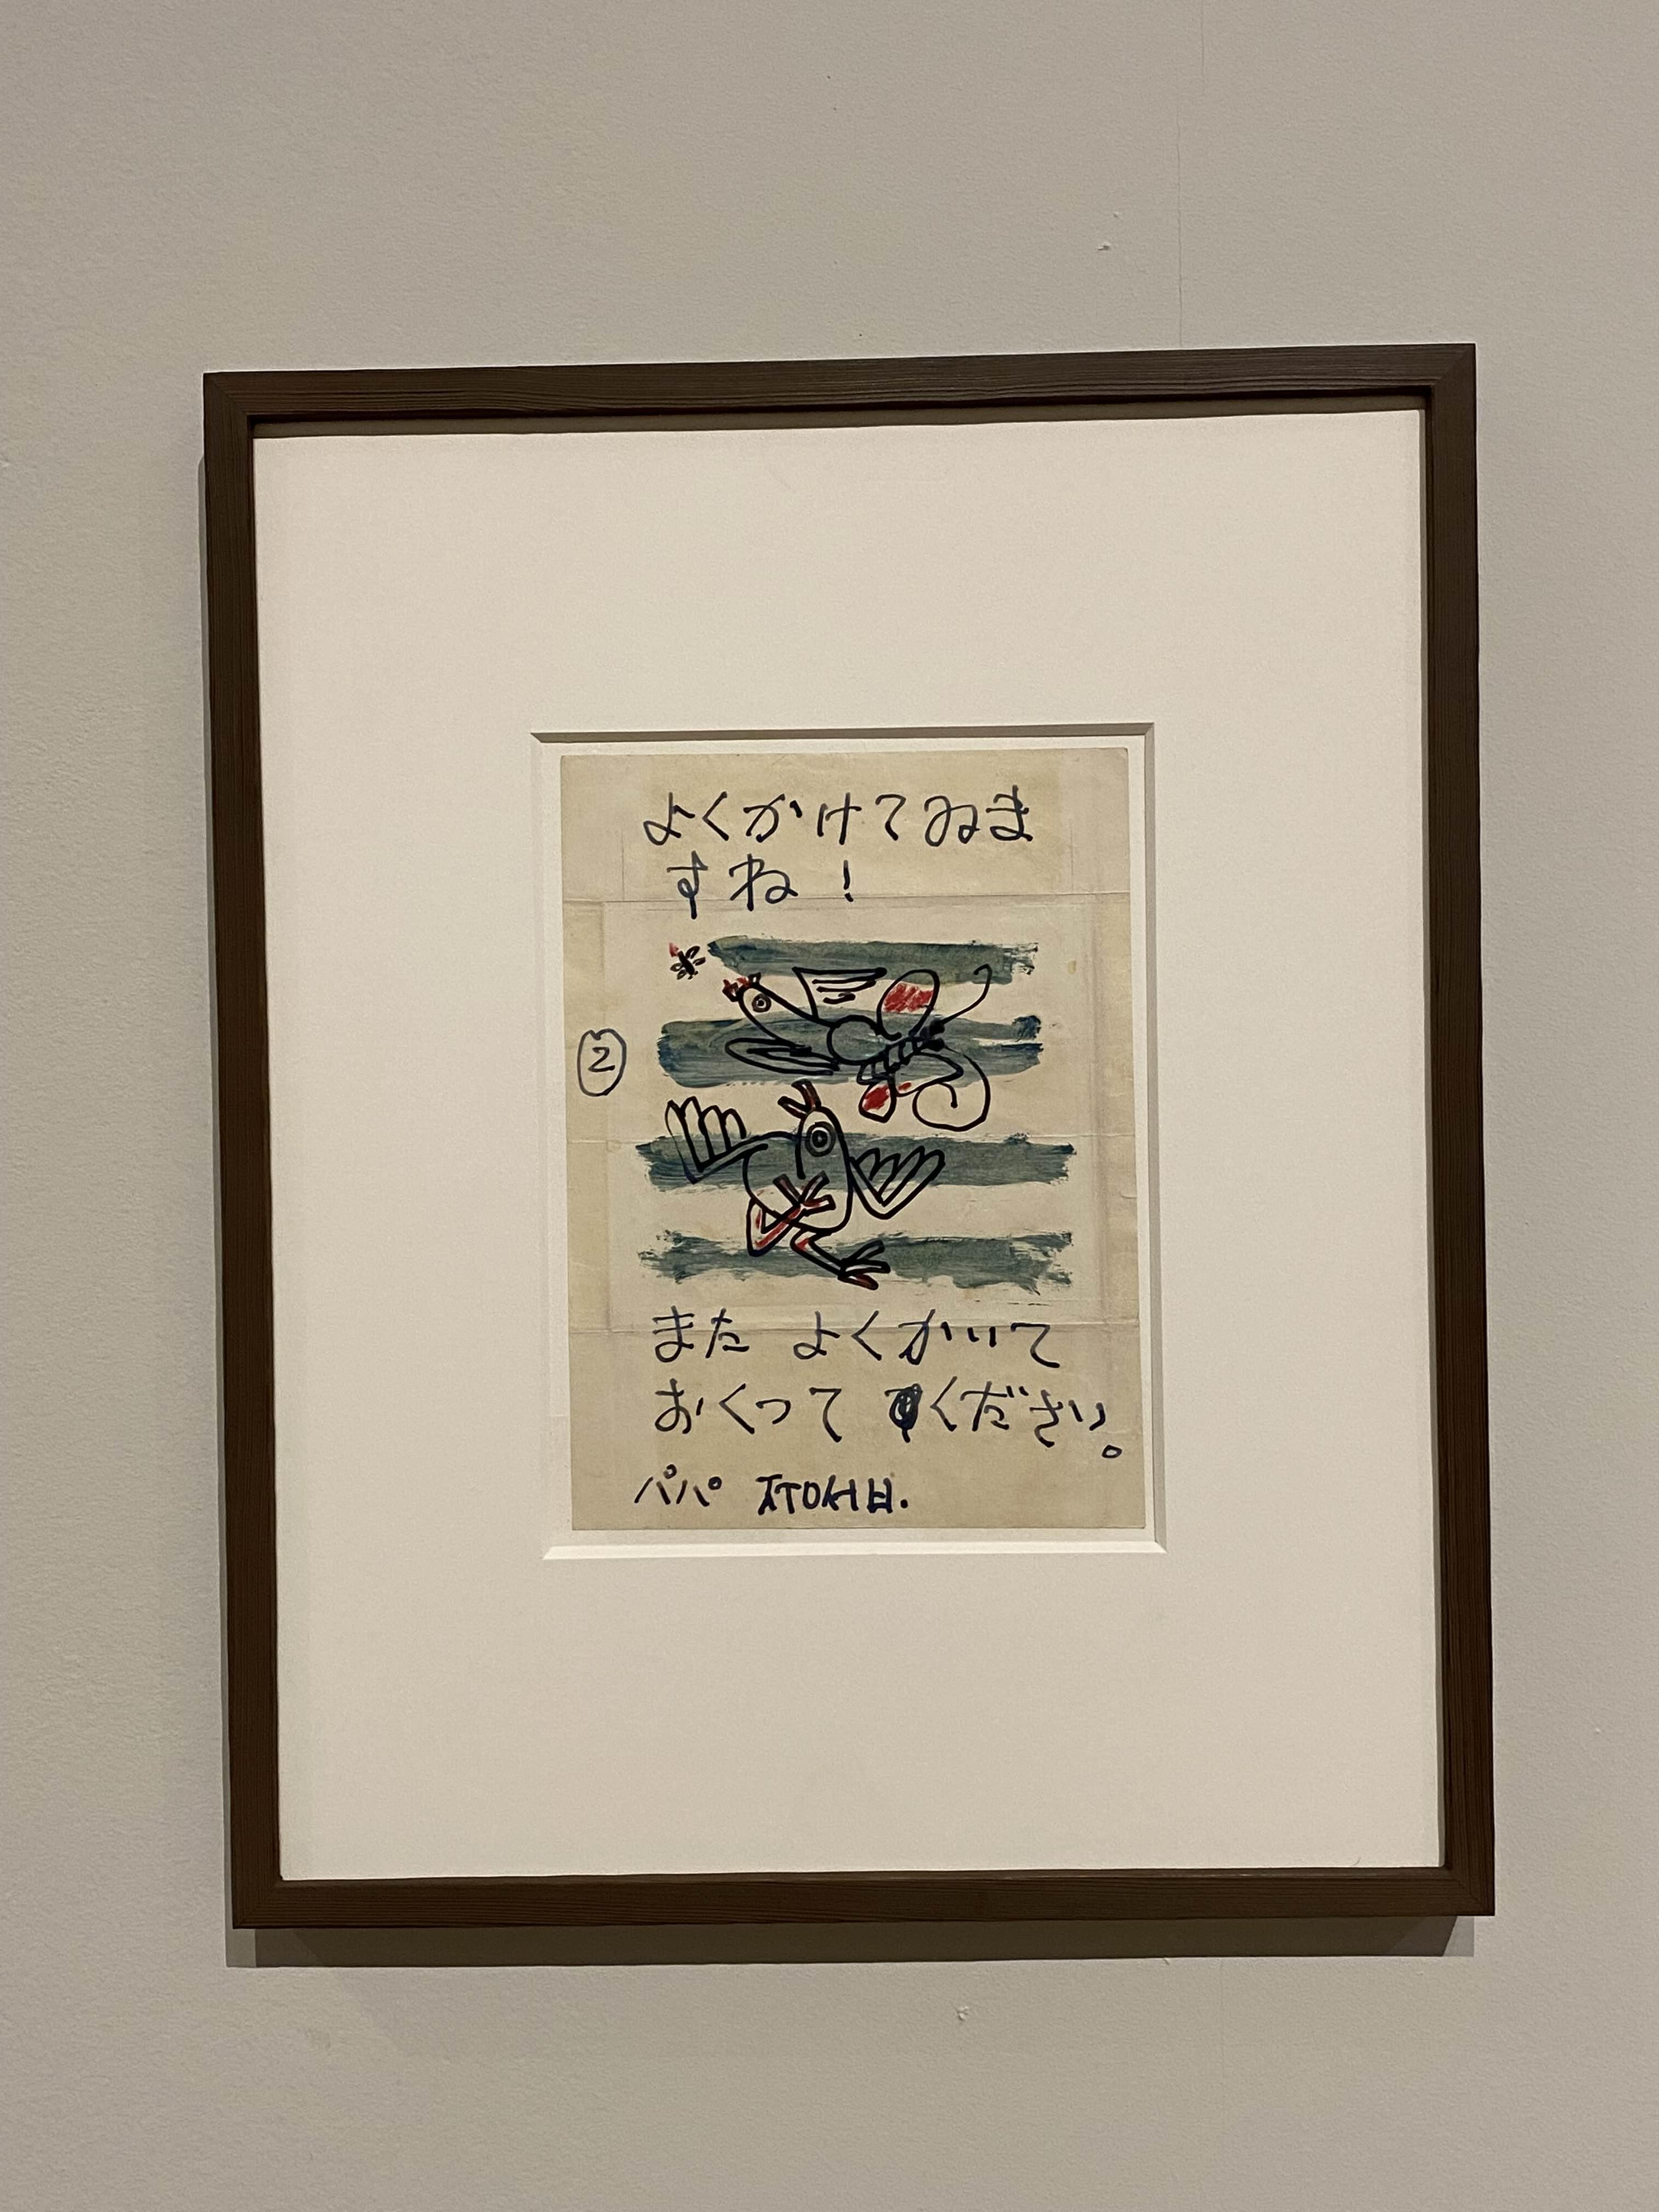 よくかけてゐま
すね!
②
また よくかいて
おくって ください。
パパ ㅈㅜㅇㅅㅓㅂ.